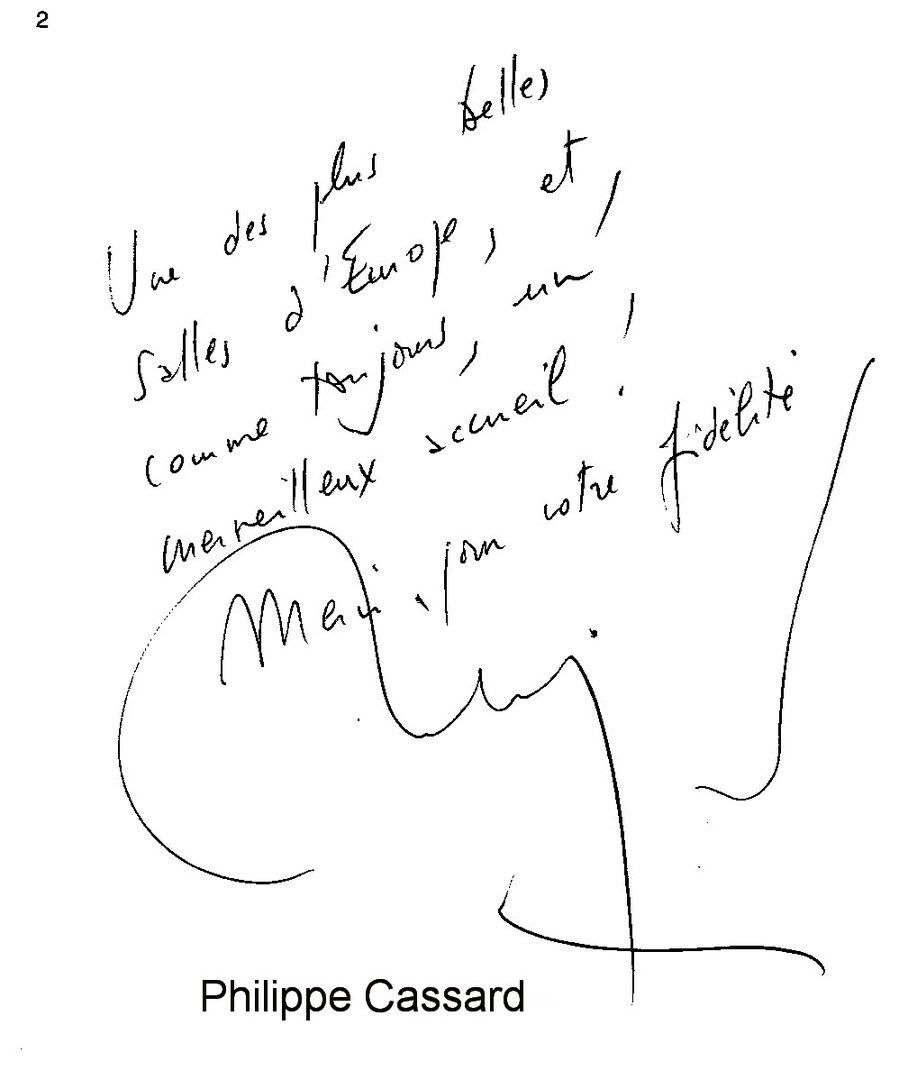 2
Une des plus belles
salles d'Europe, et,
comme toujours, un
merveilleux accueil !
Merci, pour votre fidélité
Philippe Cassard